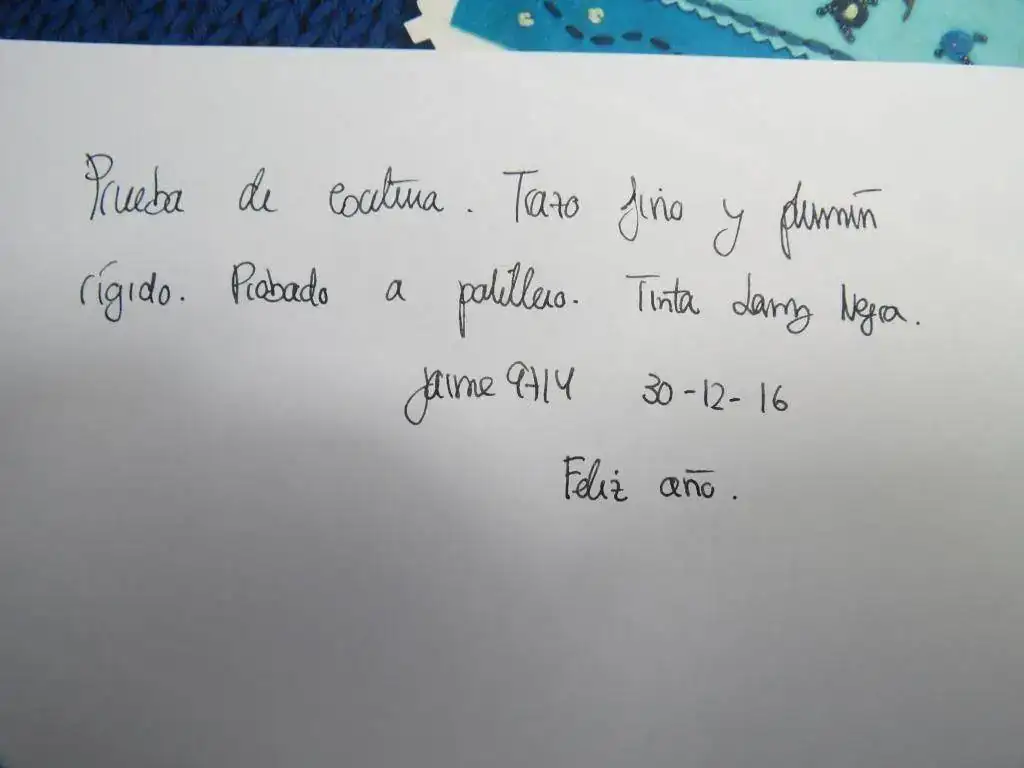 Prueba de escritura. Trazo fino y plumín
rígido. Probado a palillero. Tinta Lamy Negra.
Jaime 9714 30-12-16
Feliz año.